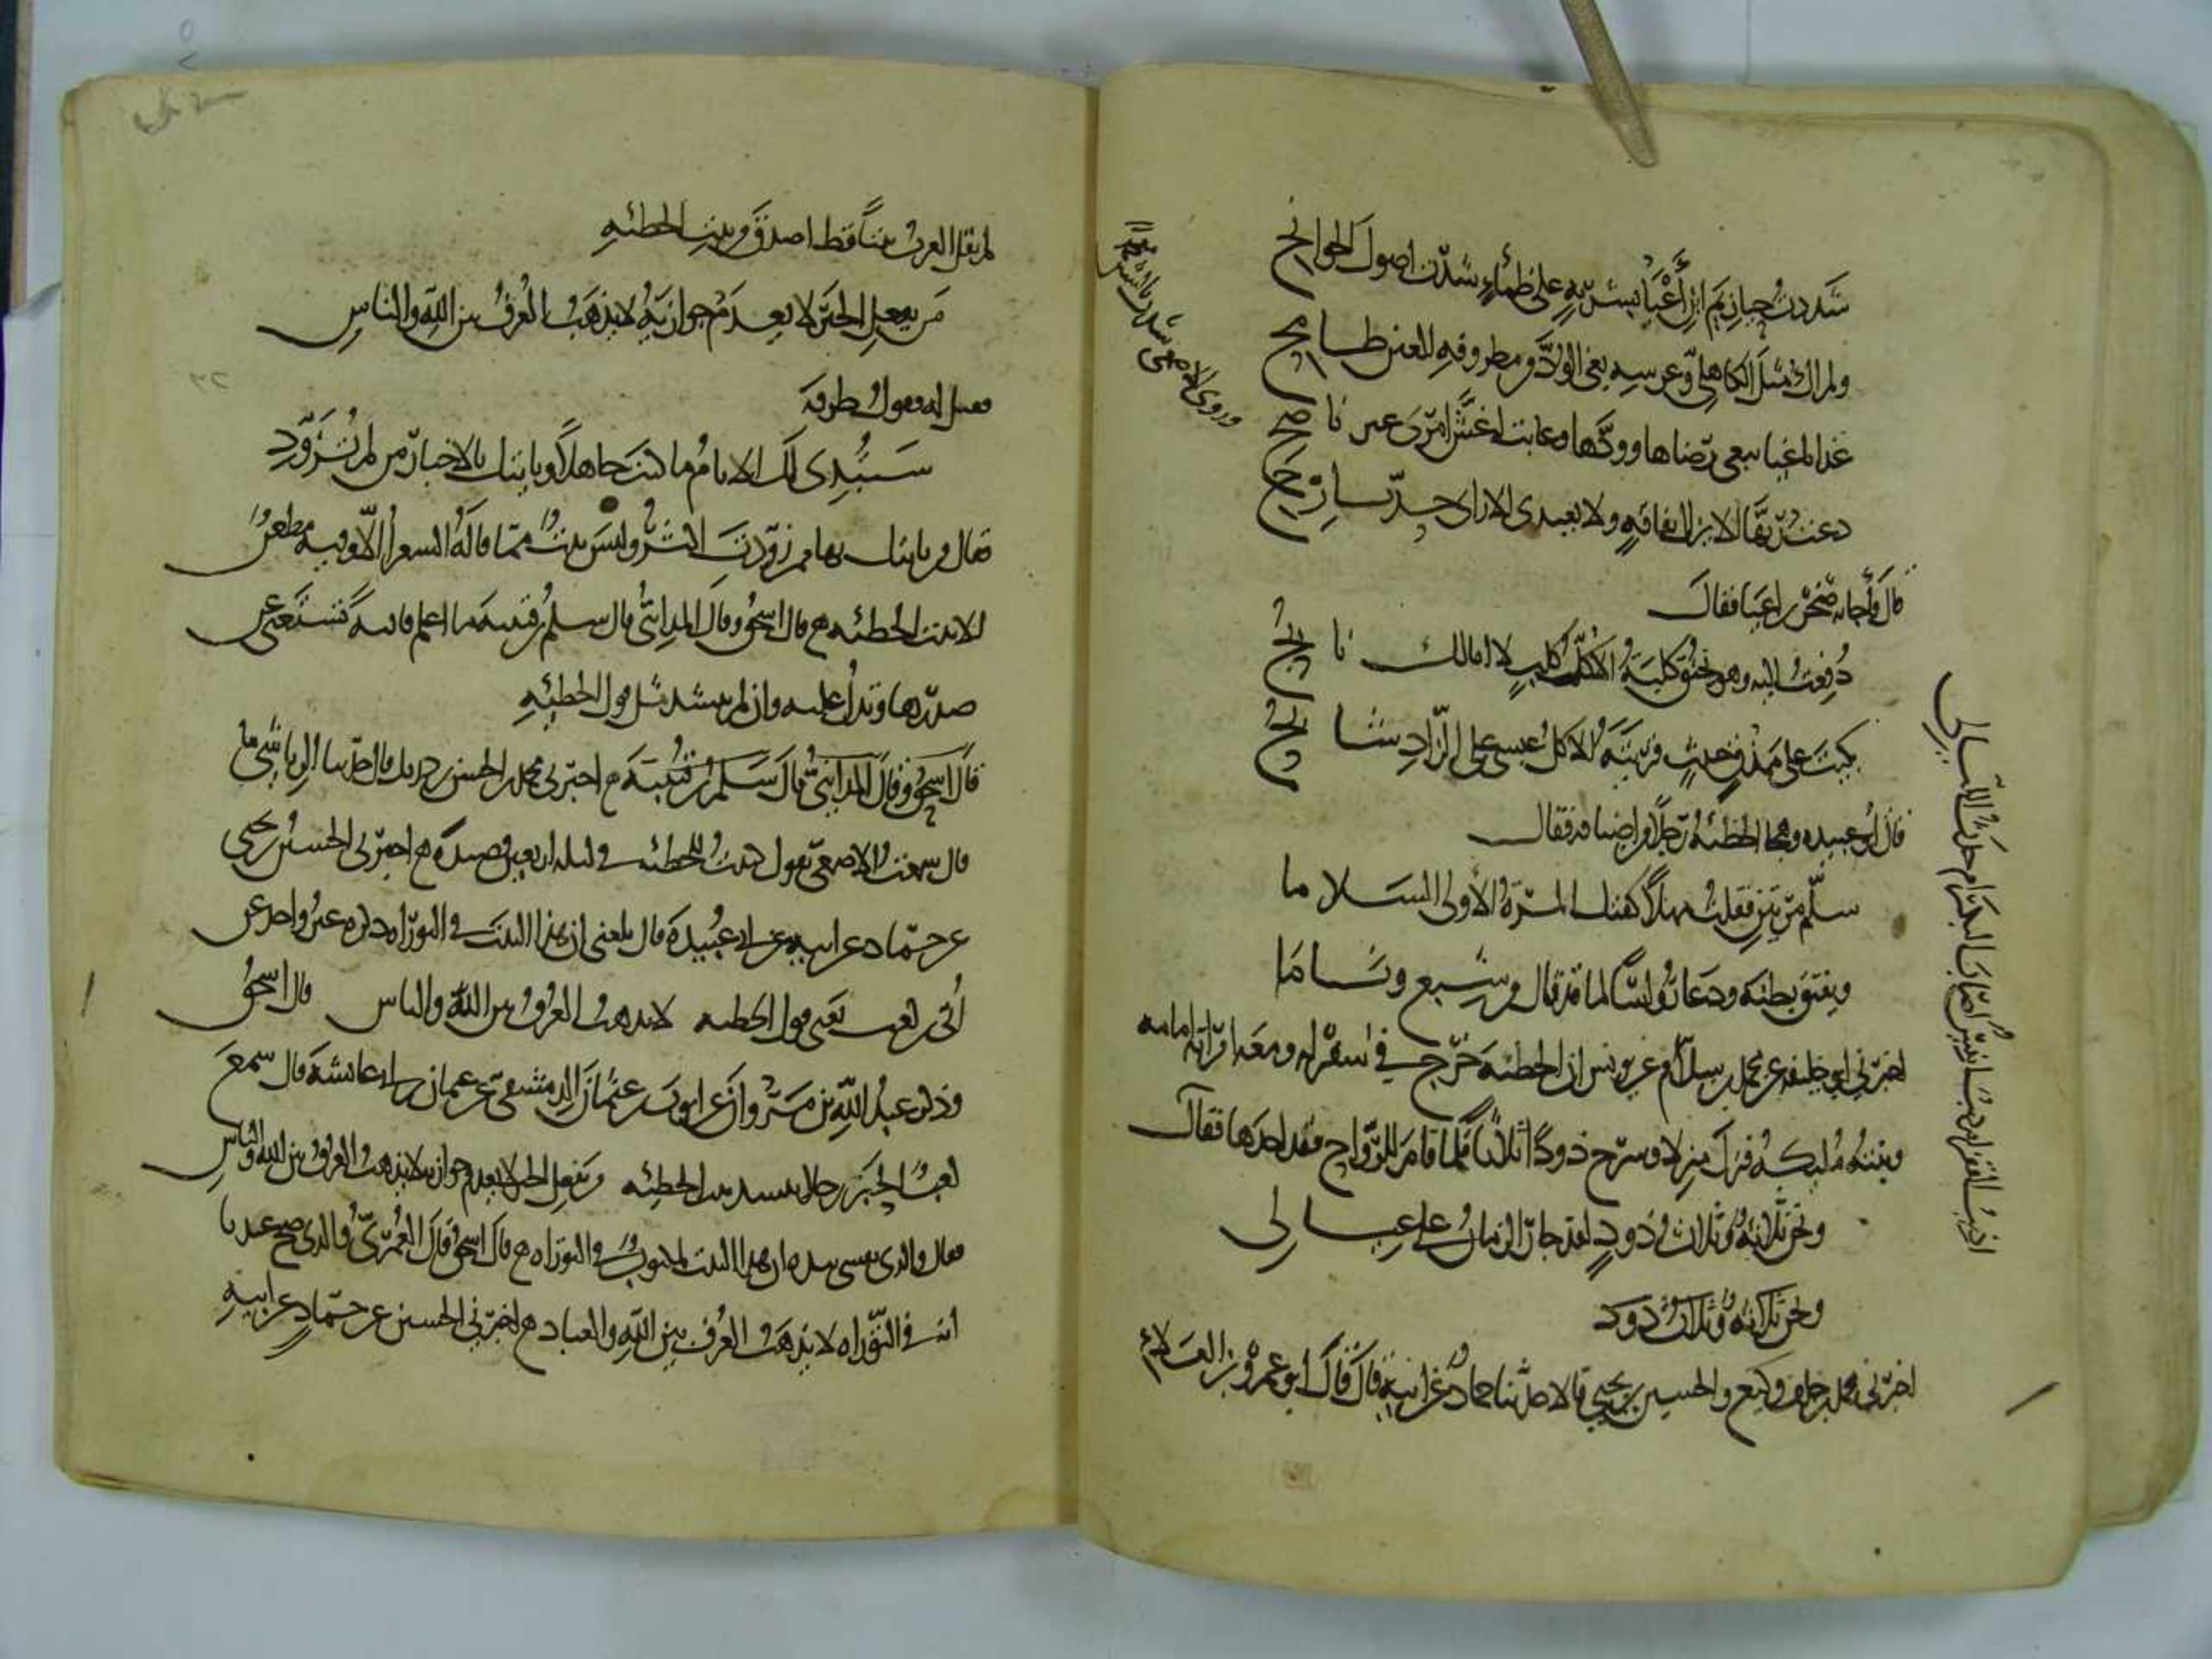 شددت حيازيم ابن أعيا بشربة على ظمأ شدت اصول الجوانح
ولم ار مثل الكاهلي وعرسه بغى الود من مطروفة العين طامح
غدا باغيا يبغي رضاها وودها وغابت له غيب امرئ غير ناصح
دعت ربها الا يزال بفاقة ولا يغتدي الا راى حد بارح
قال فأجابه صخر بن اعيا فقال
دفعت اليه وهو يخنق كلبه الا كل كلب لا ابا لك نابح
بكيت على مذق خبيث قريته الا كل عبسي على الزاد شائح
قال ابو عبيده وهجا الحطيئة رجلا من اضيافه فقال
وسلم مرتين فقلت مهلا كفتك المرة الأولى السلاما
ونقنق بطنه ودعا رؤاسا لما قد نال من شبع وناما
اخبرني ابو خليفه عن محمد بن سلام عن يونس ان الحطيئة خرج في سفر له ومعه امراته امامه
وبنته مليكه فنزل منزلا وسرح ذودا ثلاثا فلما قام للرواح فقد احدها فقال
اذئب القفر ام ذئب انيس اصاب البكر ام حدث الليالي
ونحن ثلاثة وثلاث ذود لقد جار الزمان على عيالي
ونحن ثلاثة وثلاث ذود
اخبرني محمد بن خلف وكيع والحسين بن يحيى قالا حدثنا حماد عن ابيه قال قال ابو عمرو بن العلاء
لم تقل العرب بيتا قط اصدق من بيت الحطيئة
من يفعل الخير لا يعدم جوازيه لا يذهب العرف بين الله والناس
فقيل له فقول طرفة
ستبدي لك الايام ما كنت جاهلا وياتيك بالاخبار من لم تزود
فقال من ياتيك بها ممن زودت اكثر وليس بيت مما قاله الشعراء الا وفيه مطعن
الا بيت الحطيئه قال اسحق وقال المدايني قال سلم بن قتيبه ما اعلم قافية تستغني عن
صدرها وتدل عليه وان لم ينشد مثل قول الحطيئة
قال اسحق وقال المدايني قال سلم بن قتيبة اخبرني محمد بن الحسن بن دريد قال حدثنا الرياشي
قال سمعت الاصمعي يقول كتبت للحطيئه في ليله اربعين قصيده اخبرني الحسين بن يحيى
عن حماد عن ابيه عن ابي عبيدة قال بلغني ان هذا البيت في التوراه ذكره غير واحد عن
أبي بن كعب يعني قول الحطيه لا يذهب العرف بين الله والناس قال اسحق
وذكر عبد الله بن مروان عن ايوب بن عثمان الدمشقي عن عثمان بن ابي عائشة قال سمع
كعب الحبر رجلا ينشد بيت الحطيئه من يفعل الخير لا يعدم جوازيه لا يذهب العرف بين الله والناس
فقال والذي نفسي بيده ان هذا البيت لمكتوب في التوراه قال اسحق قال العمري والذي صح عندنا
انه في التوراه لا يذهب العرف بين الله والعباد اخبرني الحسين عن حماد عن ابيه